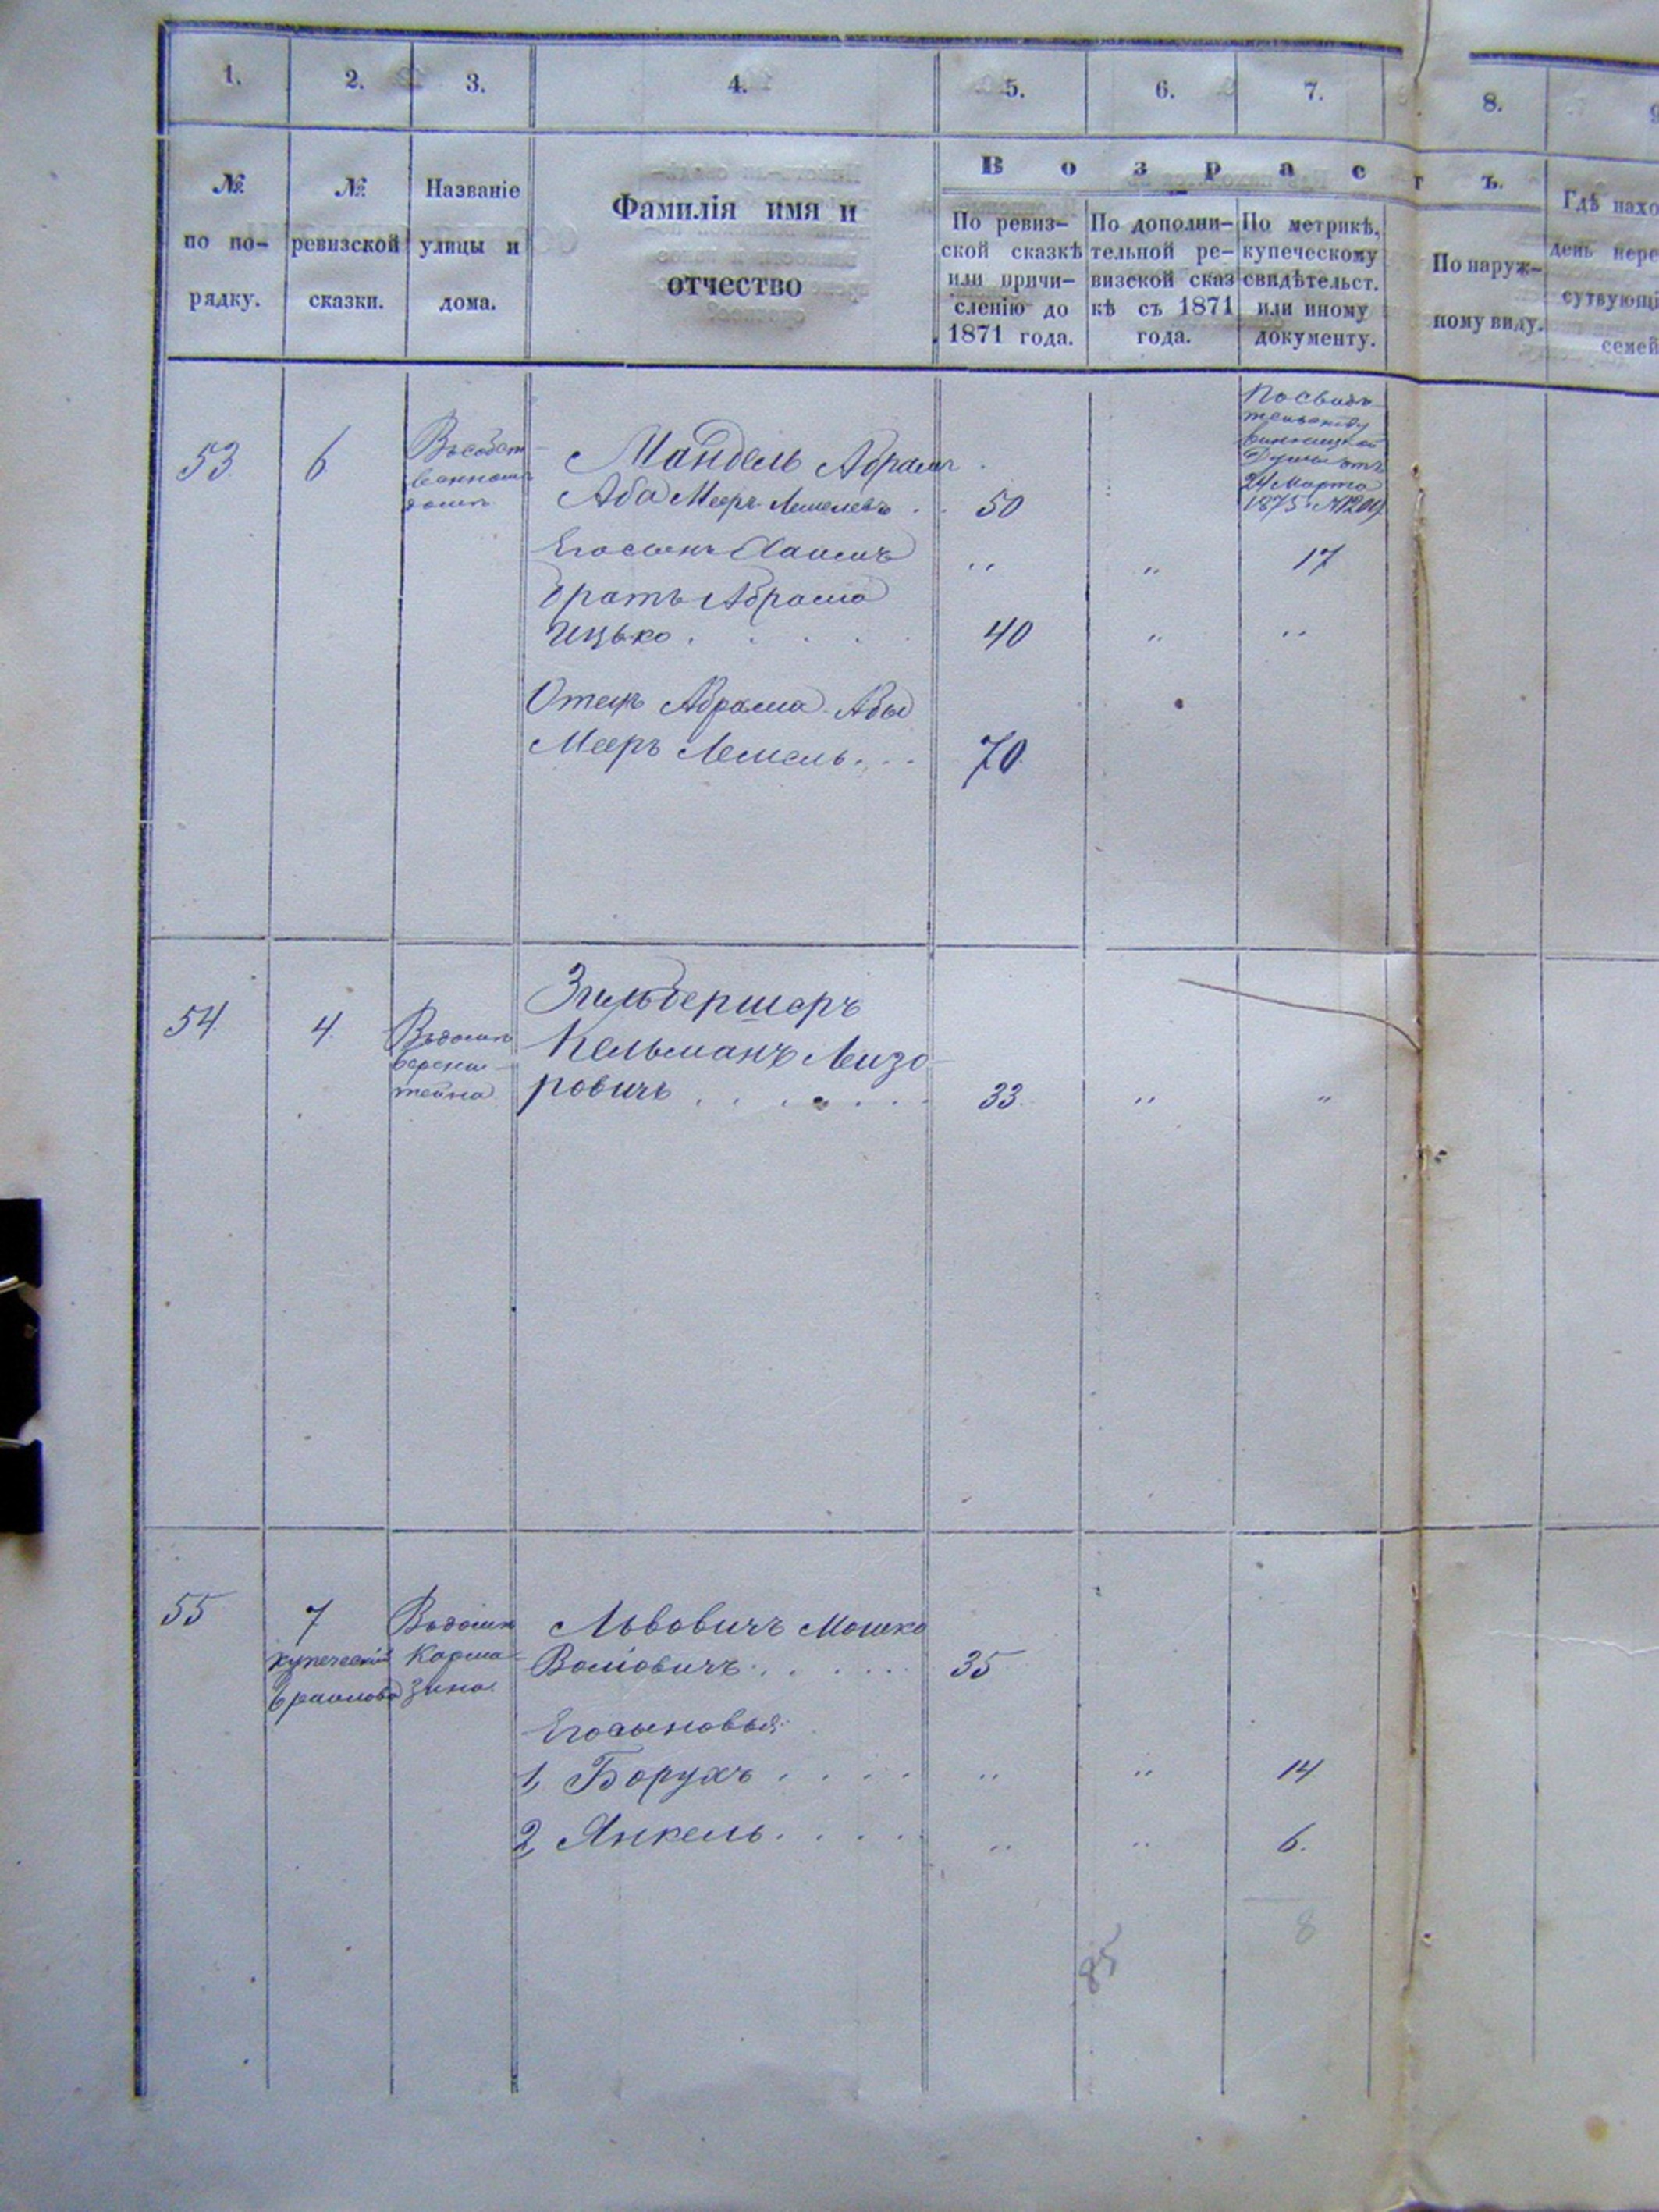 1. 2. 3. 4. 5. 6. 7. 8.
№ по по-
рядку.
№ ревизской
сказки.
Названіе
улицы и
дома.
Фамилія имя и
отчество
Возрастъ.
По ревиз-
ской сказкѣ
или причи-
сленію до
1871 года.
По дополни-
тельной ре-
визской сказ
кѣ съ 1871
года.
По метрикѣ,
купеческому
свидѣтельст.
или иному
документу.
По наруж-
ному виду.
Гдѣ нахо
день пере
сутвующі
семей
53 6
Въ собст-
венномъ
домѣ
Мандель Абрамъ
Аба Мееръ Лемелевъ . . 50
По свидѣ-
тельству
Винницкой
Думы отъ
24 Марта
1875 г. №1209
Его сынъ Хаимъ " " 17
Братъ Абрама
Ицько . . . . . 40 " "
Отецъ Абрама Абы
Мееръ Лемель . . . 70
54 4.
Въ домѣ
Беренш-
тейна
Зильбершеръ
Кельманъ Лейзо-
ровичъ . . . . . . . 33 " "
55 7
купеческій
Браилова
Въ домѣ
Карма-
зина.
Львовичъ Мошко
Волковичъ . . . . . . 35
Его сыновья:
1, Борухъ . . . . " " 14
2, Янкель . . . . . " " 6.
8
85